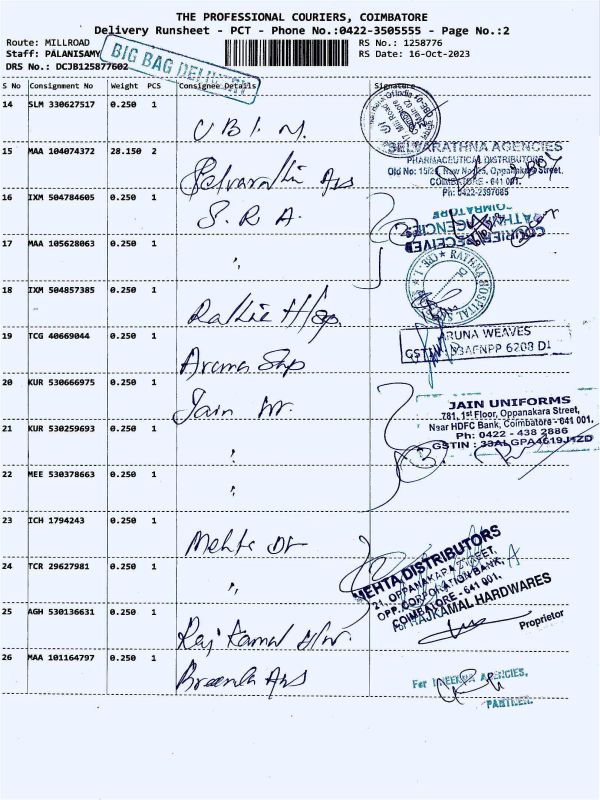 THE PROFESSIONAL COURIERS, COIMBATORE
Delivery Runsheet - PCT - Phone No.:0422-3505555 - Page No.:2
Route: MILLROAD RS No.: 1258776
Staff: PALANISAMY RS Date: 16-Oct-2023
DRS No.: DCJB125877602
BIG BAG DELIVERY
S No Consignment No Weight PCS Consignee Details Signature
14 SLM 330627517 0.250 1 U B I. M.
15 MAA 104074372 28.150 2 Selvarathi Ags
SELVARATHNA AGENCIES
PHARMACEUTICAL DISTRIBUTORS
Old No: 15/29, Oppanakara Street,
COIMBATORE - 641 001.
Ph: 0422-2397085
16 IXM 504784605 0.250 1 S. R. A.
COURIER RECEIVED
COIMBATORE
17 MAA 105628063 0.250 1 "
RATHNA HOSPITAL
18 IXM 504857385 0.250 1 Rathna Hosp.
19 TCG 40669044 0.250 1 Aruna Shp
ARUNA WEAVES
GSTIN
20 KUR 530666975 0.250 1 Jain
JAIN UNIFORMS
781, 1st Floor, Oppanakara Street,
Near HDFC Bank, Coimbatore - 641 001.
Ph: 0422 - 438 2886
GSTIN : 33ALGPA4619J1ZD
21 KUR 530259693 0.250 1 "
22 MEE 530378663 0.250 1 "
23 ICH 1794243 0.250 1 Mehta Dr
MEHTA DISTRIBUTORS
21, OPPANAKARA STREET,
OPP. CORPORATION BANK,
COIMBATORE - 641 001.
24 TCR 29627981 0.250 1 "
For RAJKAMAL HARDWARES
Proprietor
25 AGH 530136631 0.250 1 Raj Kamal H/w.
26 MAA 101164797 0.250 1 Ags
For AGENCIES,
PARTNER.